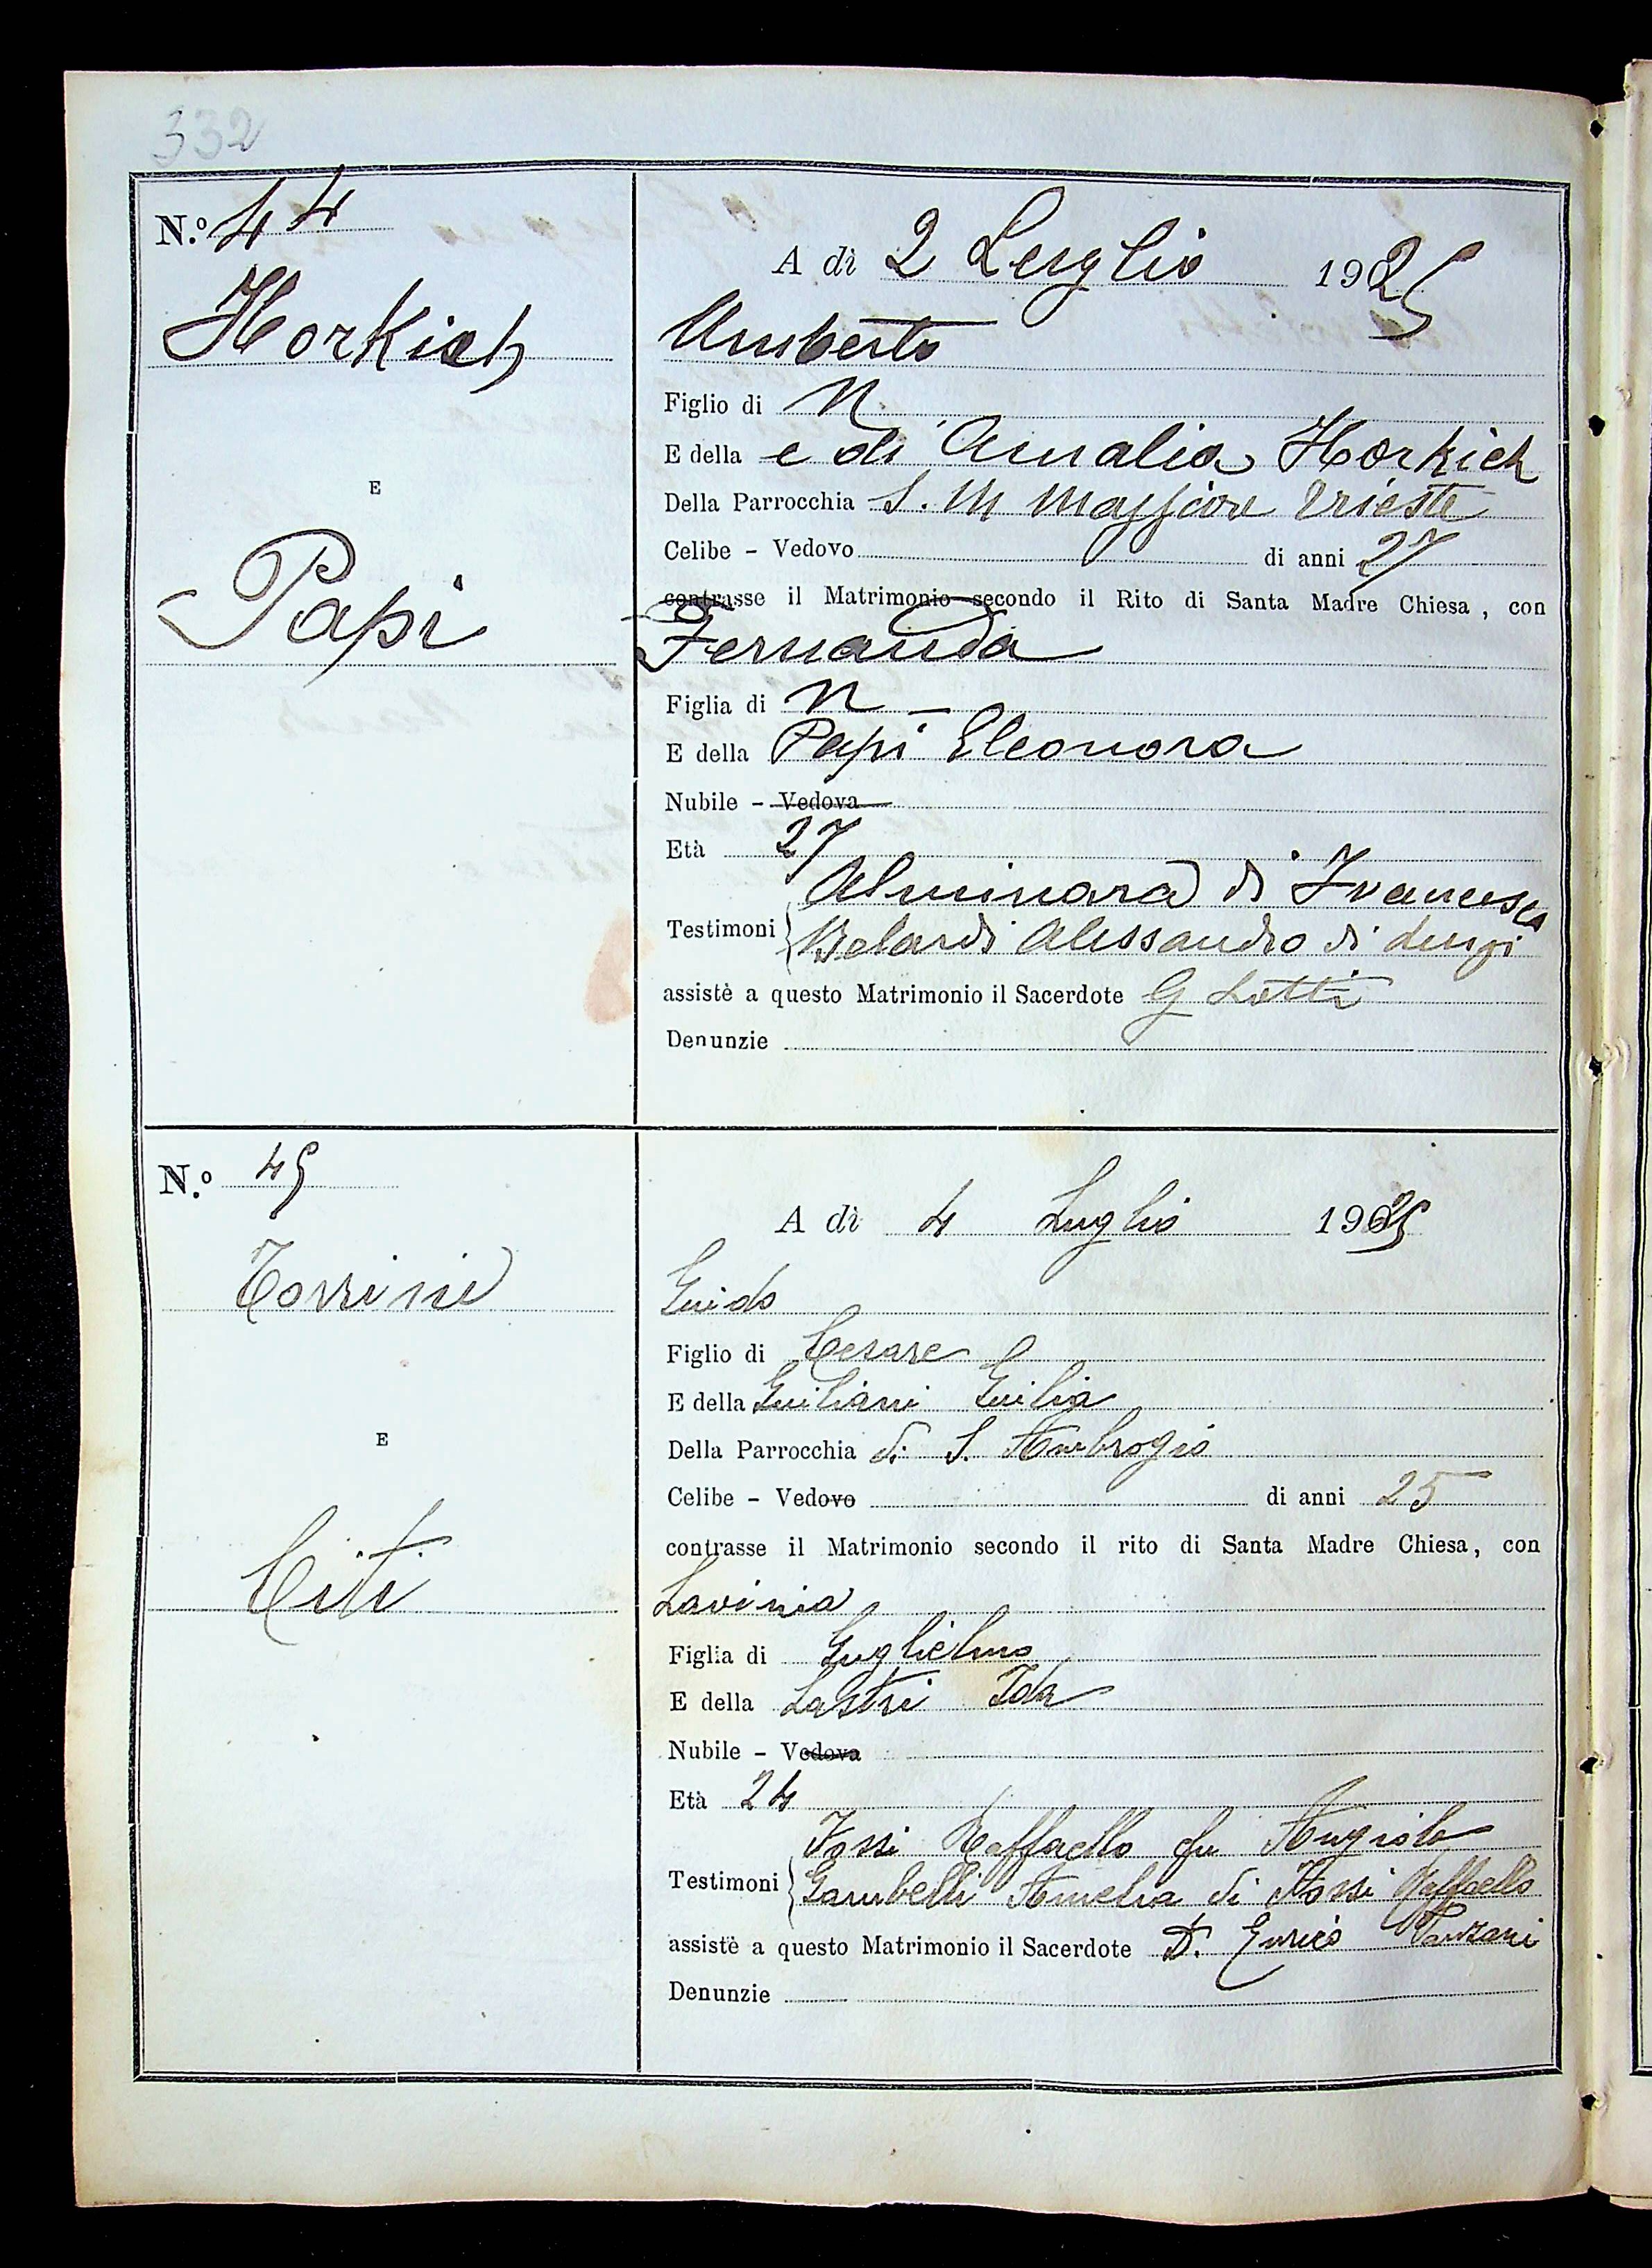 332
N.o 44
A dì 2 Luglio 1925
Horkich
Umberto
Figlio di N
E della e di Amalia Horkich
Della Parrocchia S. M Maggiore Trieste
E
Celibe - Vedovo di anni 27
contrasse il Matrimonio secondo il Rito di Santa Madre Chiesa, con
Papi
Fernanda
Figlia di N -
E della Papi Eleonora
Nubile - Vedova
Età 27
Alminara di Francesco
Testimoni Belardi Alessandro di Luigi
assistè a questo Matrimonio il Sacerdote G Lotti
Denunzie
N.o 45
A dì 4 Luglio 1925
Torrini
Guido
Figlio di Cesare
E della Giuliani Giulia
E
Della Parrocchia di S. Ambrogio
Celibe - Vedovo di anni 25
contrasse il Matrimonio secondo il rito di Santa Madre Chiesa, con
Citi
Lavinia
Figlia di Guglielmo
E della Lastri Ida
Nubile - Vedova
Età 24
Fossi Raffaello fu Angiolo
Testimoni Gambelli Amelia di Fossi Raffaello
assistè a questo Matrimonio il Sacerdote D. Enrico
Denunzie